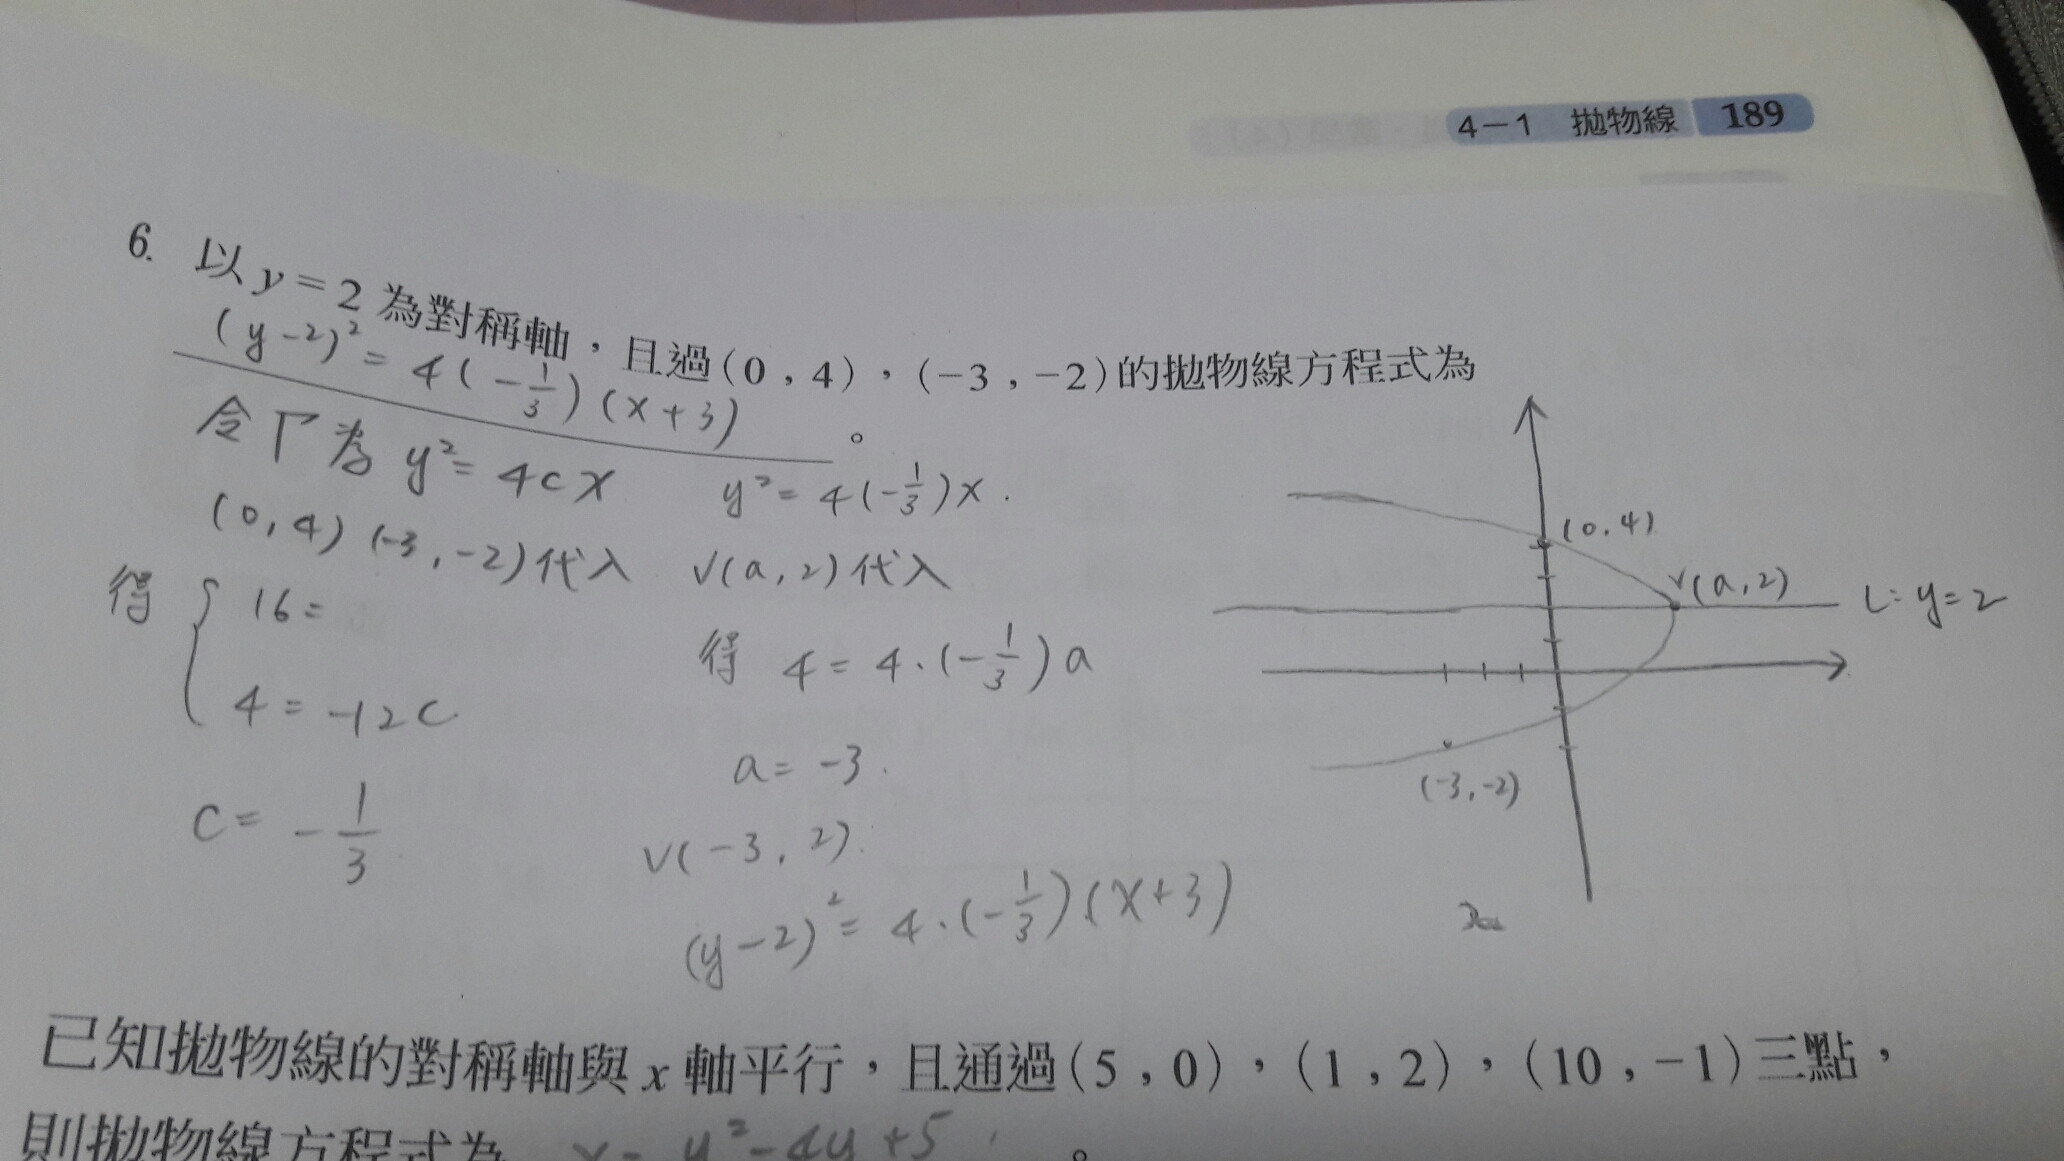 4－1 拋物線 189
6. 以y＝2為對稱軸，且過(0，4)，(－3，－2)的拋物線方程式為
(y-2)² = 4(-1/3)(x+3) 。
令Γ為 y²=4cx
(0,4) (-3,-2)代入
得 { 16=
4 = -12c
c = -1/3
y²=4(-1/3)x.
V(a,2)代入
得 4=4·(-1/3)a
a=-3.
V(-3,2).
(y-2)²=4·(-1/3)(x+3)
(0,4)
V(a,2)
L: y=2
(-3,-2)
已知拋物線的對稱軸與x軸平行，且通過(5，0)，(1，2)，(10，－1)三點，
則拋物線方程式為 x = y²-4y+5 。